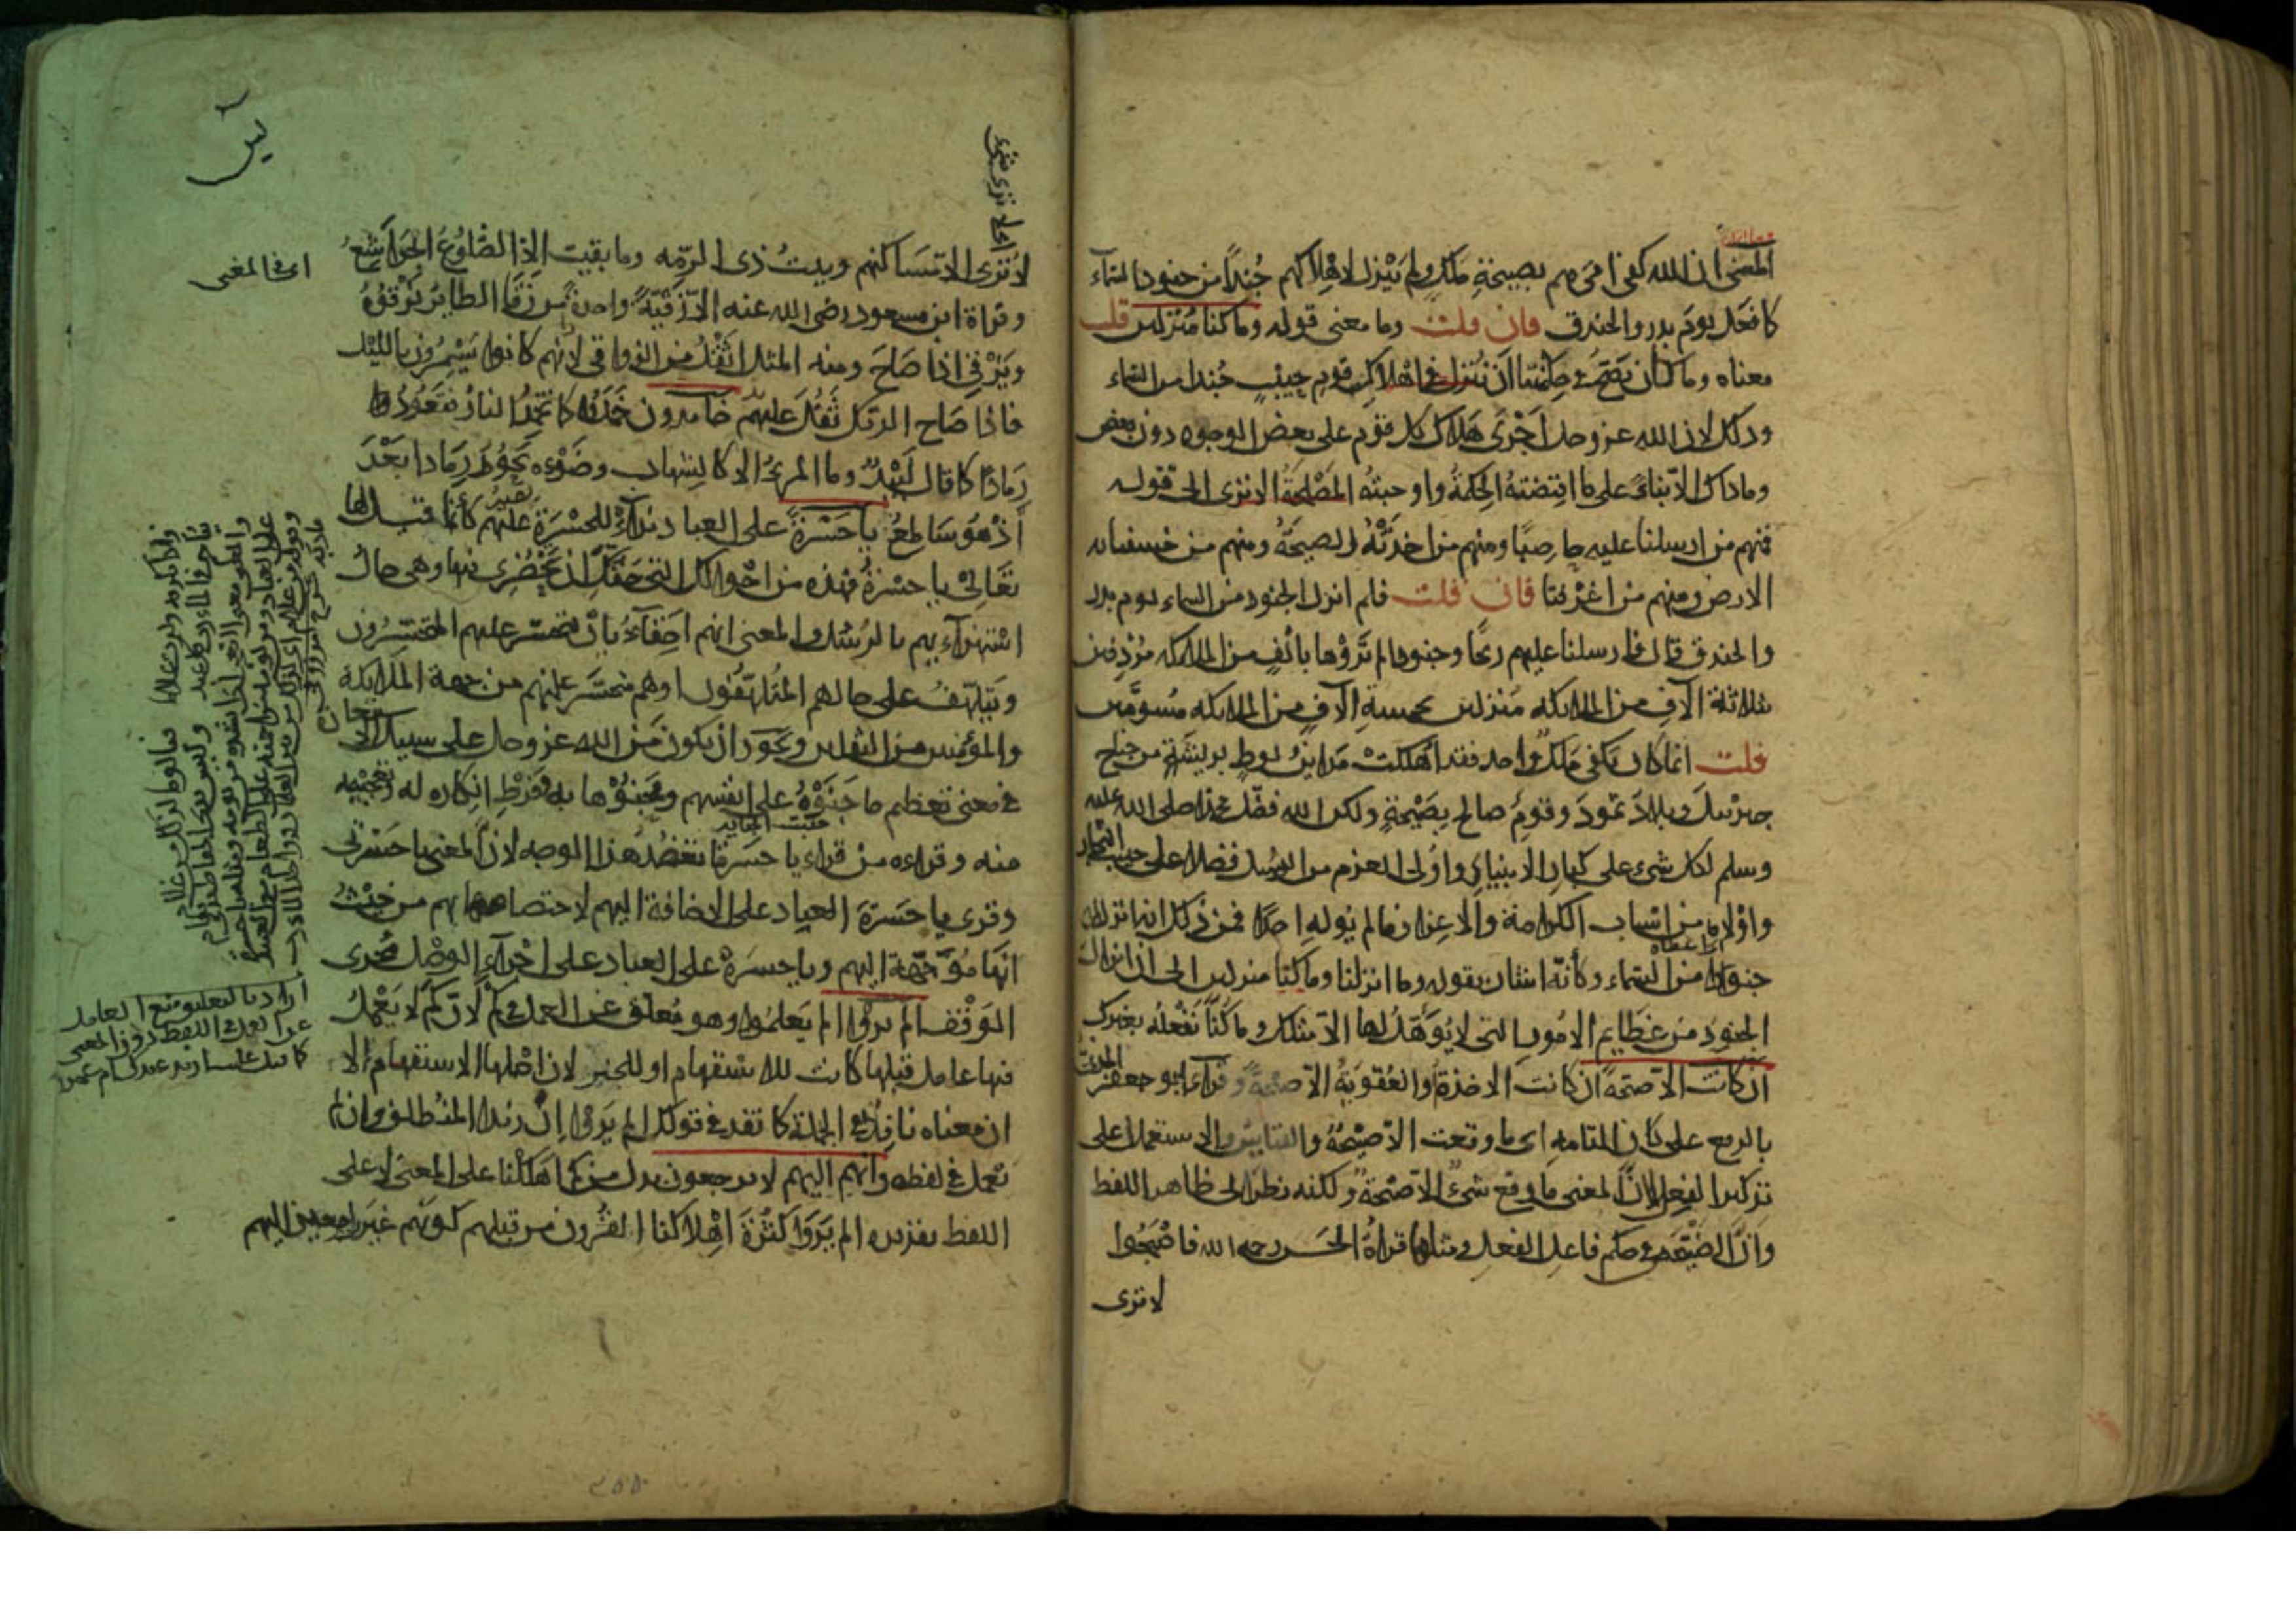 المعنى ان الله كفى امرهم بصيحة ملك ولم ينزل لاهلاكهم جندا من جنود السماء
كما فعل يوم بدر والخندق فان قلت وما معنى قوله وما كنا منزلين قلت
معناه وما كان يصح في حكمتنا ان ننزل في اهلاك قوم حبيب جندا من السماء
وذلك لان الله عز وجل اجرى هلاك كل قوم على بعض الوجوه دون بعض
وما ذاك الا بناء على ما اقتضته الحكمة واوجبته المصلحة الا ترى الى قوله
فمنهم من ارسلنا عليه حاصبا ومنهم من اخذته الصيحة ومنهم من خسفنا به
الارض ومنهم من اغرقنا فان قلت فلم انزل الجنود من السماء يوم بدر
والخندق قال فارسلنا عليهم ريحا وجنودا لم تروها بالف من الملائكة مردفين
بثلاثة آلاف من الملائكة منزلين بخمسة آلاف من الملائكة مسومين
قلت انما كان يكفى ملك واحد فقد اهلكت مداين لوط بريشة من جناح
جبرئيل وبلاد ثمود وقوم صالح بصيحة ولكن الله فضل محمدا صلى الله عليه
وسلم بكل شىء على كبار الانبياء واولى العزم من الرسل فضلا على حبيب النجار
واولاه من اسباب الكرامة والاعزاز ما لم يوله احدا فمن ذلك انه انزل له
جنودا من السماء وكأنه اشار بقوله وما انزلنا وما كنا منزلين الى ان انزال
الجنود من عظايم الامور التى لا يؤهل لها الا مثلك وما كنا نفعله بغيرك
ان كانت الا صيحة ان كانت الاخذة او العقوبة الا صيحة وقراء ابو جعفر المدنى
بالرفع على كان التامة اى ما وقعت الا صيحة والقياس والاستعمال على
تذكير الفعل لان المعنى ما وقع شىء الا صيحة ولكنه نظر الى ظاهر اللفظ
وان الصيحة في حكم فاعل الفعل ومثلها قراءة الحسن رحمه الله فاصبحوا
لا ترى
يس
لا ترى الا مساكنهم وبيت ذى الرمه وما بقيت الا الضلوع الجراشع
اى في المعنى
وقراة ابن مسعود رضى الله عنه الا زقية واحدة من زقا الطاير يزقو
ويزقى اذا صاح ومنه المثل اثقل من الزواقى لانهم كانوا يسمرون بالليل
فاذا صاح الديك ثقل عليهم خامدون خمدوا كما تخمد النار فتعود
رمادا كما قال لبيد وما المرء الا كالشهاب وضوءه يحور رمادا بعد
اذ هو ساطع يا حسرة على العباد نداء للحسرة عليهم كأنما قيل لها
تعالى يا حسرة فهذه من احوالك التى حقك ان تحضرى فيها وهى حال
استهزاءهم بالرسل والمعنى انهم احقاء بان يتحسر عليهم المتحسرون
ويتلهف على حالهم المتلهفون او هم متحسر عليهم من جهة الملايكة
والمؤمنين من الثقلين ويجوز ان يكون من الله عز وجل على سبيل الاستعارة
في معنى تعظيم ما جنوه على انفسهم ومحنوها به وفرط انكاره له وتعجيبه
منه وقراءه من قراء يا حسرتا تعضد هذا الوجه لان المعنى يا حسرتى
وقرى يا حسرة العباد على الاضافة اليهم لاختصاصها بهم من حيث
انها موجهة اليهم ويا حسره على العباد على اجراء الوصل مجرى
الوقف الم يروا الم يعلموا وهو معلق عن العمل في كم لان كم لا يعمل
فيها عامل قبلها كانت للاستفهام او للخبر لان اصلها الاستفهام الا
ان معناه نافذ في الجملة كما نفذ في قولك الم يروا ان زيدا لمنطلق وان لم
تعمل في لفظه وانهم اليهم لا يرجعون بدل من كم اهلكنا على المعنى لا على
اللفظ تقديره الم يروا كثرة اهلاكنا القرون من قبلهم كونهم غير راجعين اليهم
اراد بالتعليق منع العامل
عن العمل في اللفظ دون المعنى